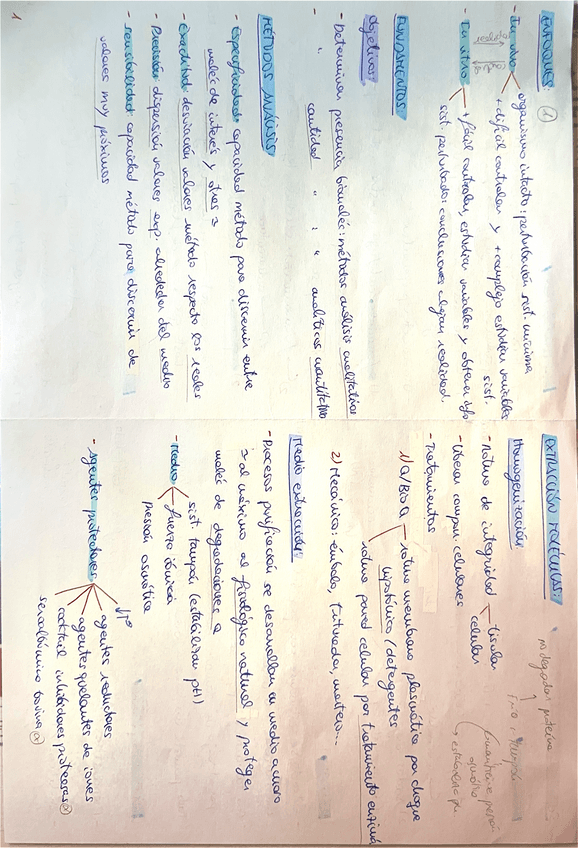 ENFOQUES: ①
- In vivo organismo intacto: perturbación sist. mínima
+ difícil controlar y + complejo estudiar variables
realidad
control
sist.
- In vitro + fácil controlar, estudiar variables y obtener info
sist. perturbado: conclusiones alejan realidad.
FUNDAMENTOS
Objetivos
- Determinar presencia biomoléc: métodos análisis cualitativos
- " cantidad " : " analíticos cuantitativo
MÉTODOS ANÁLISIS
- Especificidad: capacidad método para discernir entre
moléc de interés y otras =
- Exactitud: desviación valores método respecto los reales
- Precisión: dispersión valores exp. alrededor del medio
- Sensibilidad: capacidad método para discernir de
valores muy próximos
1
EXTRACCIÓN MOLÉCULAS:
proteína
Frío
Homogenización
- Rotura de integridad tisular
celular
- Liberar compon. celulares
- Tratamientos
1) Q/Bioq rotura membrana plasmática por choque
hipotónico / detergentes
rotura pared celular por tratamiento enzimá
2) Mecánica: émbolo, trituradora, mortero...
Medio extracción
- Procesos purificación se desarrollan en medio acuoso
= al máximo al fisiológico natural y proteger
moléc de degradaciones
- Medio sist. tampón (estabilizar pH)
fuerza iónica
presión osmótica
- Agentes protectores ↓Tº
agentes reductores
agentes quelantes de iones
cocktail inhibidores proteasas
seroalbúmina bovina